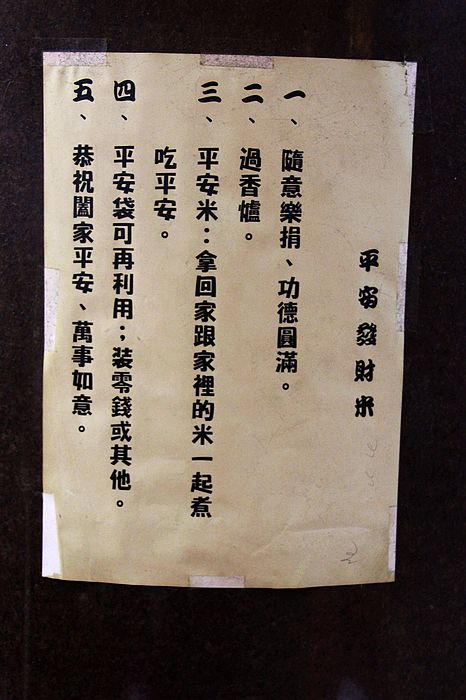 平安發財米
一、隨意樂捐、功德圓滿。
二、過香爐。
三、平安米：拿回家跟家裡的米一起煮
吃平安。
四、平安袋可再利用；裝零錢或其他。
五、恭祝闔家平安、萬事如意。